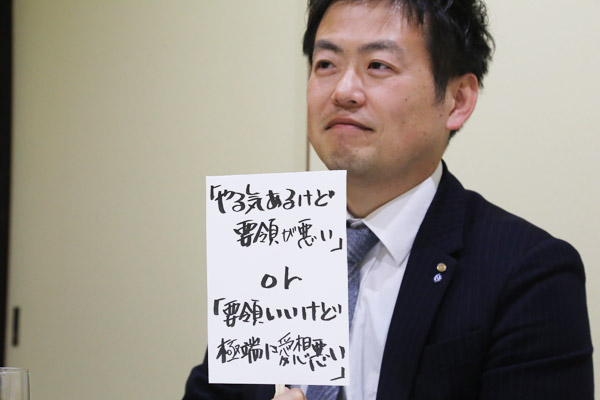 「やる気あるけど
要領が悪い」
or
「要領いいけど
極端に愛想悪い」